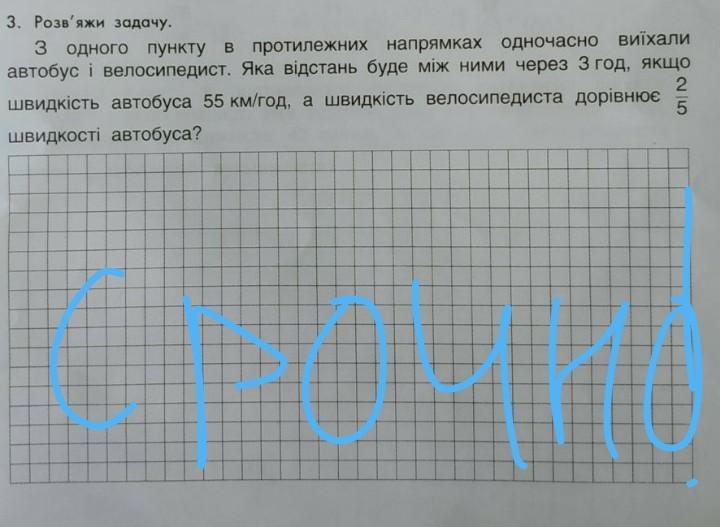 3. Розв'яжи задачу.
З одного пункту в протилежних напрямках одночасно виїхали
автобус і велосипедист. Яка відстань буде між ними через 3 год, якщо
швидкість автобуса 55 км/год, а швидкість велосипедиста дорівнює 2/5
швидкості автобуса?
срочно!